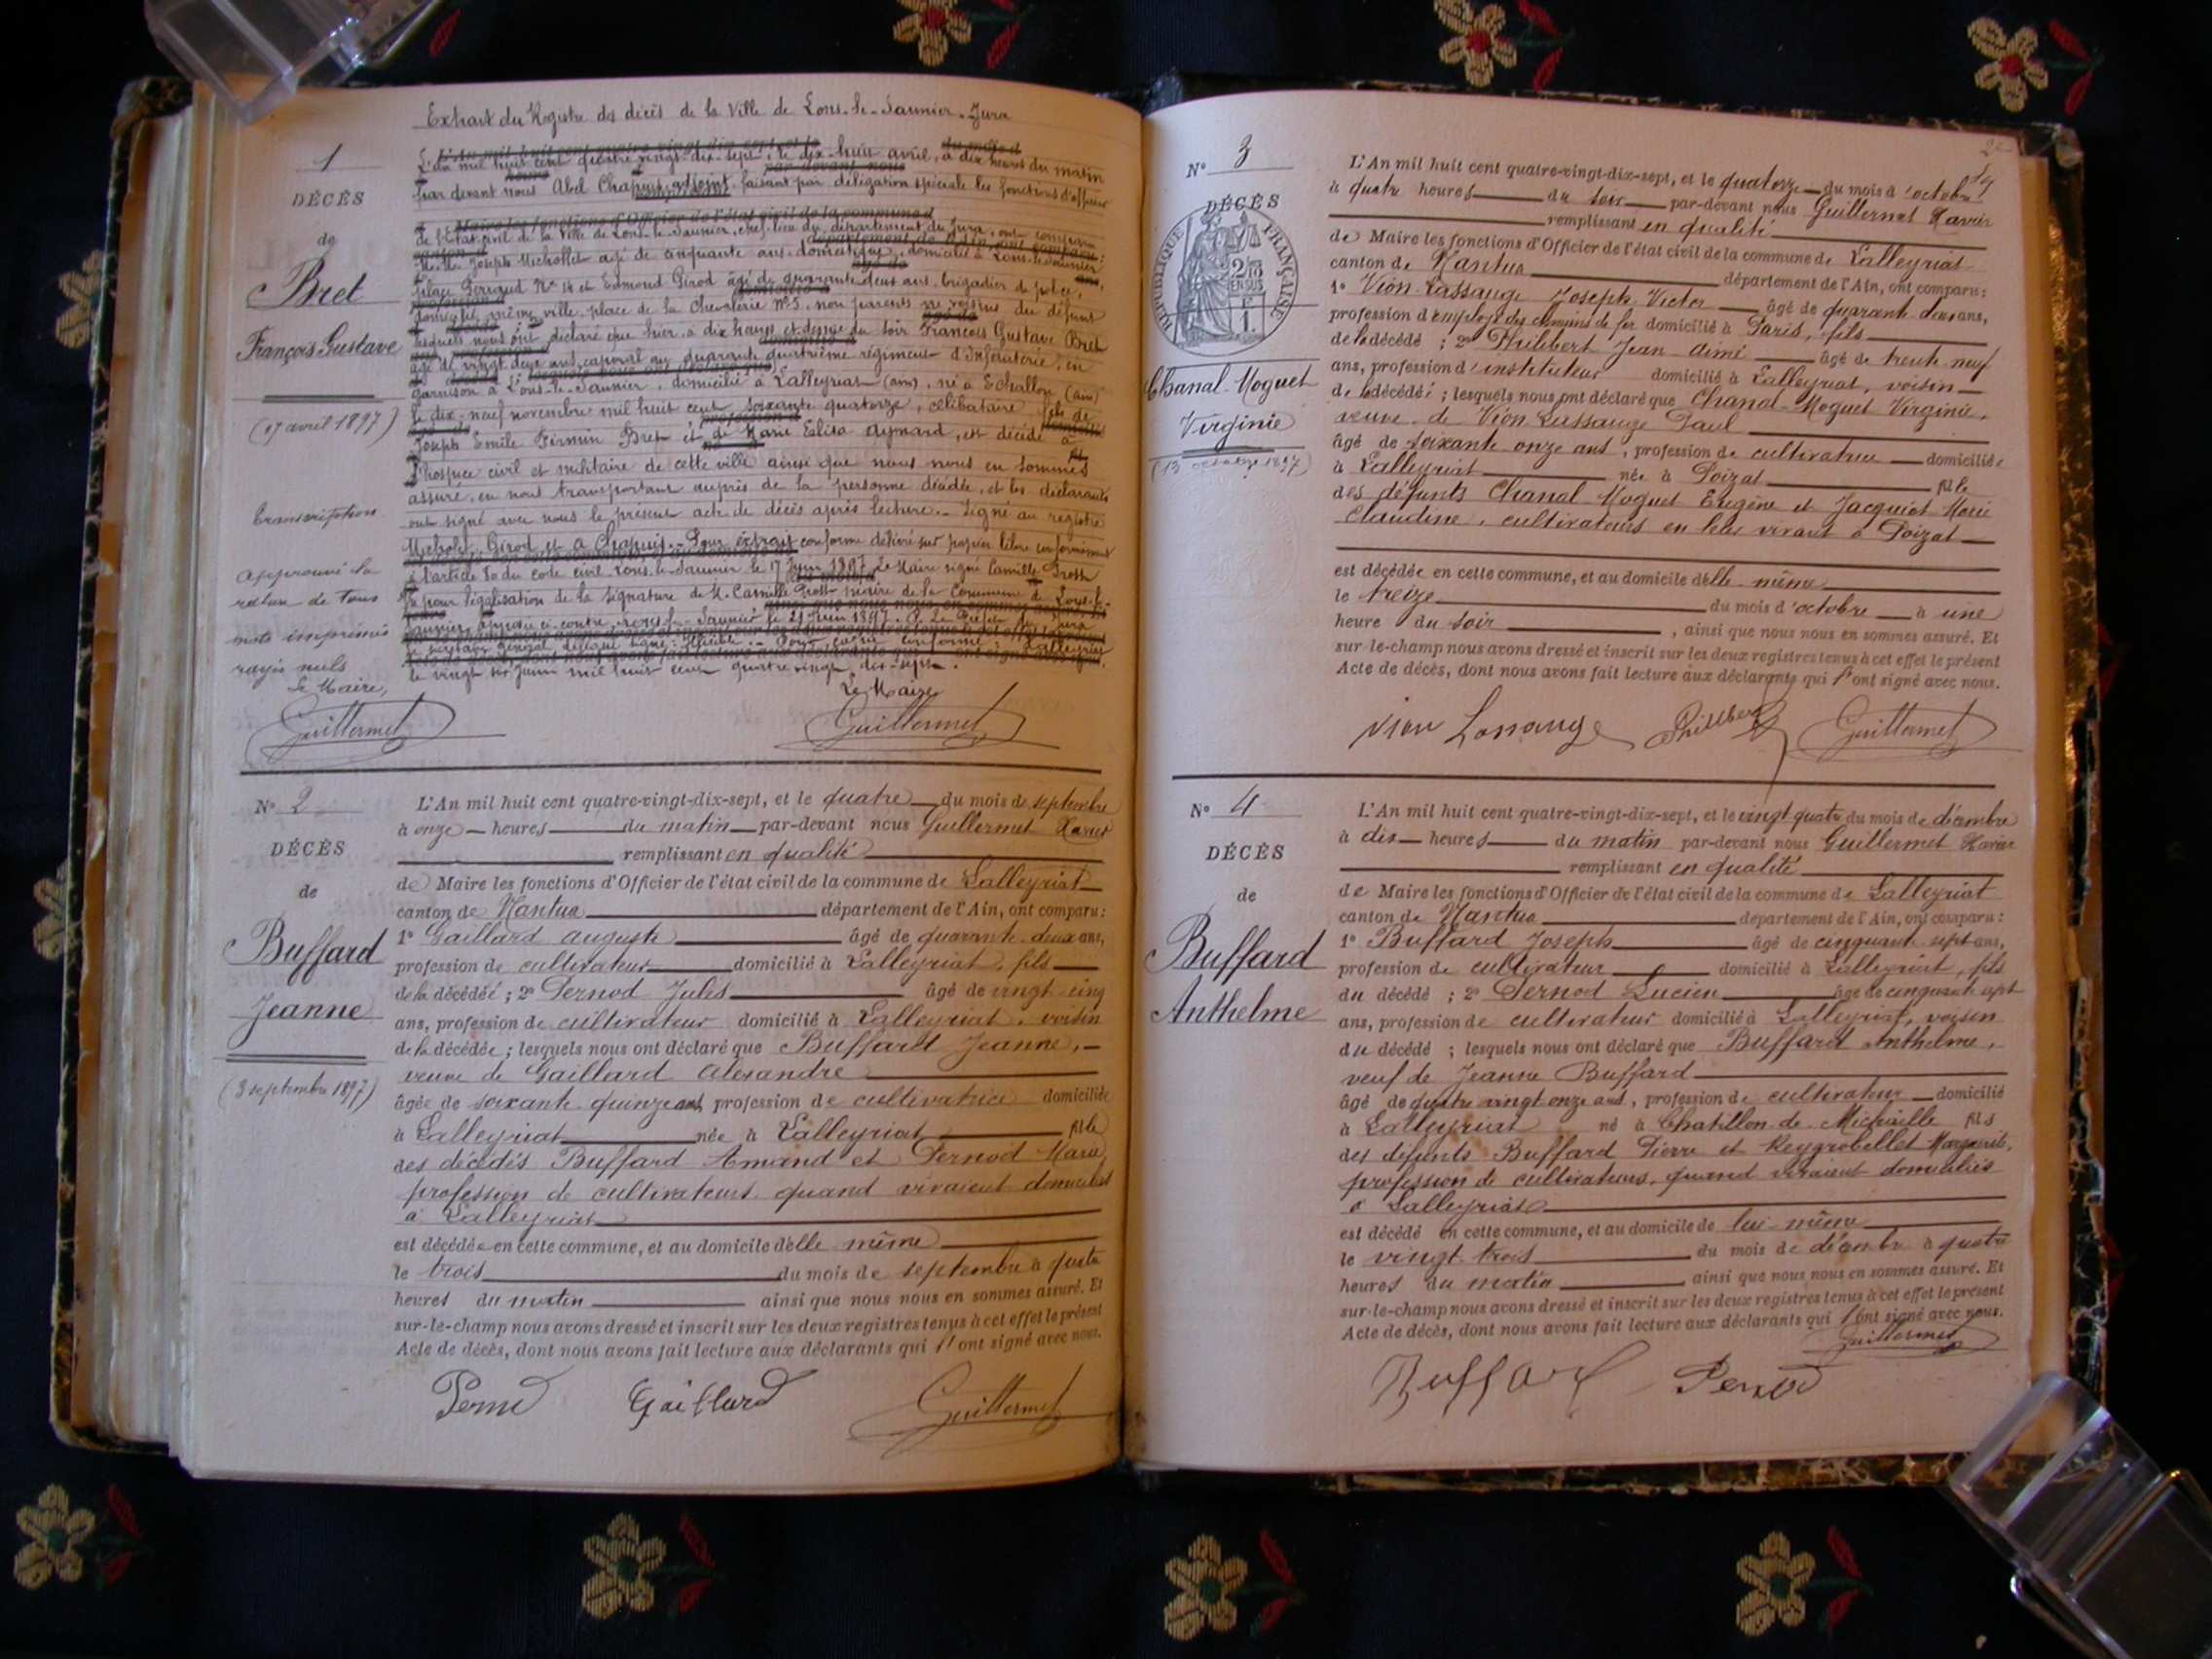 Extrait du Registre des décès de la Ville de Lons-le-Saunier-Jura
1
DÉCÈS
de
Bret
François Gustave
(17 avril 1897)
transcription
approuvé la
rature de tous
mots imprimés
rayés nuls
Le Maire,
Guillermet
L'an mil huit cent quatre vingt-dix-sept, le dix-huit avril, à dix heures du matin
par devant nous Abel Chapuis, adjoint faisant par délégation spéciale les fonctions d'officier
de l'État civil de la Ville de Lons-le-Saunier, chef-lieu du département du Jura, ont comparu
Joseph Michollet âgé de cinquante ans, domestique, domicilié à Lons-le-Saunier
place N° 14 et Edmond Girod âgé de quarante deux ans, brigadier de police,
domicilié même ville, place de la Chevalerie N° 5, non parents ni voisins du défunt
lesquels nous ont déclaré que hier, à dix heures et demie du soir François Gustave Bret
âgé de vingt deux ans, caporal au quarante quatrième régiment d'Infanterie, en
garnison à Lons-le-Saunier, domicilié à Lalleyriat (ain), né à Échallon (ain)
le dix-neuf novembre mil huit cent soixante quatorze, célibataire fils de
Joseph Emile Firmin Bret et de Marie Elisa Aymard, est décédé à
l'hospice civil et militaire de cette ville ainsi que nous nous en sommes
assuré, en nous transportant auprès de la personne décédée, et les déclarants
ont signé avec nous le présent acte de décès après lecture. Signé au registre
Michollet, Girod et A Chapuis. Pour extrait conforme délivré sur papier libre conformément
à l'article 80 du code civil. Lons-le-Saunier le 17 Juin 1897. Le Maire signé Camille Prost
Vu pour légalisation de la signature de M. Camille Prost maire de la Commune de Lons-le-
Saunier, apposée ci-contre, Lons-le-Saunier le 21 Juin 1897. P. Le Préfet du Jura
le secrétaire général délégué signé: Pour copie conforme Lalleyriat
le vingt six Juin mil huit cent quatre vingt dix-sept.
Le Maire
Guillermet
N° 2
DÉCÈS
de
Buffard
Jeanne
(3 septembre 1897)
L'An mil huit cent quatre-vingt-dix-sept, et le quatre du mois de septembre
à onze heures du matin par-devant nous Guillermet Xavier
remplissant en qualité
de Maire les fonctions d'Officier de l'état civil de la commune de Lalleyriat
canton de Nantua département de l'Ain, ont comparu:
1° Gaillard Auguste âgé de quarante-deux ans,
profession de cultivateur domicilié à Lalleyriat, fils
de la décédée; 2° Pernod Jules âgé de vingt cinq
ans, profession de cultivateur domicilié à Lalleyriat, voisin
de la décédée; lesquels nous ont déclaré que Buffard Jeanne,
veuve de Gaillard Alexandre
âgée de soixante quinze ans, profession de cultivatrice domiciliée
à Lalleyriat née à Lalleyriat fille
des décédés Buffard Amand et Pernod Marie,
profession de cultivateurs quand vivaient domiciliés
à Lalleyriat
est décédée en cette commune, et au domicile d'elle même
le trois du mois de septembre à quatre
heures du matin ainsi que nous nous en sommes assuré. Et
sur-le-champ nous avons dressé et inscrit sur les deux registres tenus à cet effet le présent
Acte de décès, dont nous avons fait lecture aux déclarants qui l'ont signé avec nous.
Pernod Gaillard Guillermet
N° 3
DÉCÈS
RÉPUBLIQUE FRANÇAISE
2/10 EN SUS
Chanal-Moguet
Virginie
(13 octobre 1897)
L'An mil huit cent quatre-vingt-dix-sept, et le quatorze du mois d'octobre
à quatre heures du soir par-devant nous Guillermet Xavier
remplissant en qualité
de Maire les fonctions d'Officier de l'état civil de la commune de Lalleyriat
canton de Nantua département de l'Ain, ont comparu:
1° Vion-Lassauge Joseph Victor âgé de quarante deux ans,
profession d'employé des chemins de fer domicilié à Paris, fils
de la décédé; 2° Philibert Jean Aimé âgé de trente neuf
ans, profession d'instituteur domicilié à Lalleyriat, voisin
de la décédéé; lesquels nous ont déclaré que Chanal-Moguet Virginie,
veuve de Vion Lassauge Paul
âgé de soixante onze ans, profession de cultivatrice domiciliée
à Lalleyriat née à Poizat fille
des défunts Chanal Moguet Eugène et Jacquiot Marie
Claudine, cultivateurs en leur vivant à Poizat
est décédée en cette commune, et au domicile d'elle même
le treize du mois d'octobre à une
heure du soir, ainsi que nous nous en sommes assuré. Et
sur-le-champ nous avons dressé et inscrit sur les deux registres tenus à cet effet le présent
Acte de décès, dont nous avons fait lecture aux déclarants qui l'ont signé avec nous.
Vion Lassauge Philibert Guillermet
N° 4
DÉCÈS
de
Buffard
Anthelme
L'An mil huit cent quatre-vingt-dix-sept, et le vingt quatre du mois de décembre
à dix heures du matin par-devant nous Guillermet Xavier
remplissant en qualité
de Maire les fonctions d'Officier de l'état civil de la commune de Lalleyriat
canton de Nantua département de l'Ain, ont comparu:
1° Buffard Joseph âgé de cinquante sept ans,
profession de cultivateur domicilié à Lalleyriat, fils
du décédé; 2° Pernod Lucien âgé de cinquante sept
ans, profession de cultivateur domicilié à Lalleyriat, voisin
du décédé; lesquels nous ont déclaré que Buffard Anthelme,
veuf de Jeanne Buffard
âgé de quatre vingt onze ans, profession de cultivateur domicilié
à Lalleyriat né à Chatillon de Michaille fils
des défunts Buffard Pierre et Reygrobellet Marguerite,
profession de cultivateurs, quand vivaient domiciliés
à Lalleyriat
est décédé en cette commune, et au domicile de lui-même
le vingt trois du mois de décembre à quatre
heures du matin ainsi que nous nous en sommes assuré. Et
sur-le-champ nous avons dressé et inscrit sur les deux registres tenus à cet effet le présent
Acte de décès, dont nous avons fait lecture aux déclarants qui l'ont signé avec nous.
Guillermet
Buffard Pernod